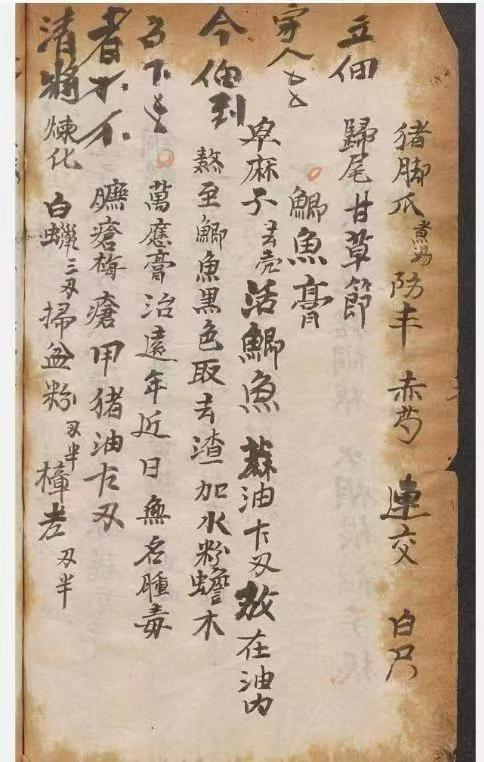 猪脚爪煮湯 防丰 赤芍 連交 白只
歸尾甘草節
鯽魚膏
卓麻子去壳 活鯽魚 蔴油卞刄 放在油内
熬至鯽魚黑色取去渣加水粉蟾木
萬應膏治遠年近日無名腫毒
臁瘡梅瘡 甲猪油卞刄
煉化 白蠟三刄 掃盆粉刄半 樟老刄半
立佃
字人
今佃到
者不不
清將